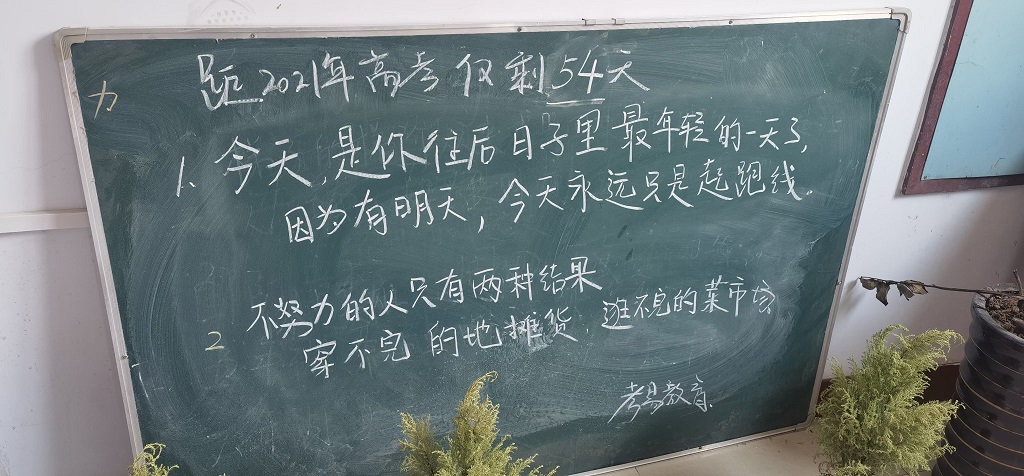 距2021年高考仅剩54天
力
1、今天,是你往后日子里最年轻的一天了,
因为有明天,今天永远只是起跑线.
2 不努力的人只有两种结果
穿不完的地摊货.逛不完的菜市场
考易教育.